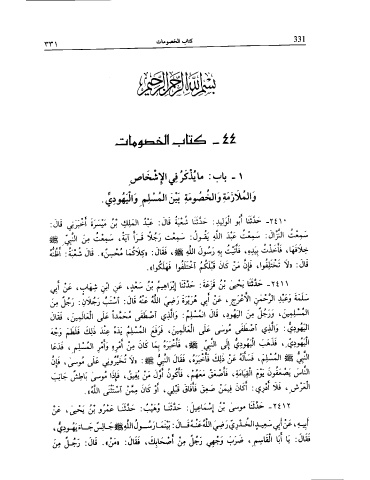 331
كتاب الخصومات
٣٣١
بسم الله الرحمن الرحيم
٤٤ - كتاب الخصومات
١ - باب: ما يُذْكَرُ في الإِشْخَاصِ
وَالمُلازَمَةِ وَالخُصُومَةِ بَيْنَ المُسْلِمِ وَالْيَهُودِيِّ.
٢٤١٠ - حَدَّثَنَا أَبُو الْوَلِيدِ: حَدَّثَنَا شُعْبَةُ قَالَ: عَبْدُ المَلِكِ بْنُ مَيْسَرَةَ أَخْبَرَنِي قَالَ:
سَمِعْتُ النَّزَّالَ: سَمِعْتُ عَبْدَ اللهِ يَقُولُ: سَمِعْتُ رَجُلًا قَرَأَ آيَةً، سَمِعْتُ مِنَ النَّبِيِّ ﷺ
خِلَافَهَا، فَأَخَذْتُ بِيَدِهِ، فَأَتَيْتُ بِهِ رَسُولَ اللهِ ﷺ، فَقَالَ: «كِلَاكُمَا مُحْسِنٌ». قَالَ شُعْبَةُ: أَظُنُّهُ
قَالَ: «لَا تَخْتَلِفُوا، فَإِنَّ مَنْ كَانَ قَبْلَكُمُ اخْتَلَفُوا فَهَلَكُوا».
٢٤١١ - حَدَّثَنَا يَحْيَى بْنُ قَزَعَةَ: حَدَّثَنَا إِبْرَاهِيمُ بْنُ سَعْدٍ، عَنِ ابْنِ شِهَابٍ، عَنْ أَبِي
سَلَمَةَ وَعَبْدِ الرَّحْمٰنِ الأَعْرَجِ، عَنْ أَبِي هُرَيْرَةَ رَضِيَ اللهُ عَنْهُ قَالَ: اسْتَبَّ رَجُلَانِ: رَجُلٌ مِنَ
المُسْلِمِينَ، وَرَجُلٌ مِنَ اليَهُودِ، قَالَ المُسْلِمُ: وَالَّذِي اصْطَفَى مُحَمَّدًا عَلَى الْعَالَمِينَ، فَقَالَ
اليَهُودِيُّ: وَالَّذِي اصْطَفَى مُوسَى عَلَى الْعَالَمِينَ، فَرَفَعَ المُسْلِمُ يَدَهُ عِنْدَ ذٰلِكَ فَلَطَمَ وَجْهَ
الْيَهُودِيِّ، فَذَهَبَ الْيَهُودِيُّ إِلَى النَّبِيِّ ﷺ، فَأَخْبَرَهُ بِمَا كَانَ مِنْ أَمْرِهِ وَأَمْرِ المُسْلِمِ، فَدَعَا
النَّبِيُّ ﷺ المُسْلِمَ، فَسَأَلَهُ عَنْ ذٰلِكَ فَأَخْبَرَهُ، فَقَالَ النَّبِيُّ ﷺ: «لَا تُخَيِّرُونِي عَلَى مُوسَى، فَإِنَّ
النَّاسَ يَصْعَقُونَ يَوْمَ الْقِيَامَةِ، فَأَصْعَقُ مَعَهُمْ، فَأَكُونُ أَوَّلَ مَنْ يُفِيقُ، فَإِذَا مُوسَى بَاطِشٌ جَانِبَ
الْعَرْشِ، فَلَا أَدْرِي: أَكَانَ فِيمَنْ صَعِقَ فَأَفَاقَ قَبْلِي، أَوْ كَانَ مِمَّنِ اسْتَثْنَى اللهُ».
٢٤١٢ - حَدَّثَنَا مُوسَى بْنُ إِسْمَاعِيلَ: حَدَّثَنَا وُهَيْبٌ: حَدَّثَنَا عَمْرُو بْنُ يَحْيَى، عَنْ
أَبِيهِ، عَنْ أَبِي سَعِيدٍ الخُدْرِيِّ رَضِيَ اللهُ عَنْهُ قَالَ: بَيْنَمَا رَسُولُ اللهِ ﷺ جَالِسٌ جَاءَ يَهُودِيٌّ،
فَقَالَ: يَا أَبَا الْقَاسِمِ، ضَرَبَ وَجْهِي رَجُلٌ مِنْ أَصْحَابِكَ، فَقَالَ: «مَنْ». قَالَ: رَجُلٌ مِنَ